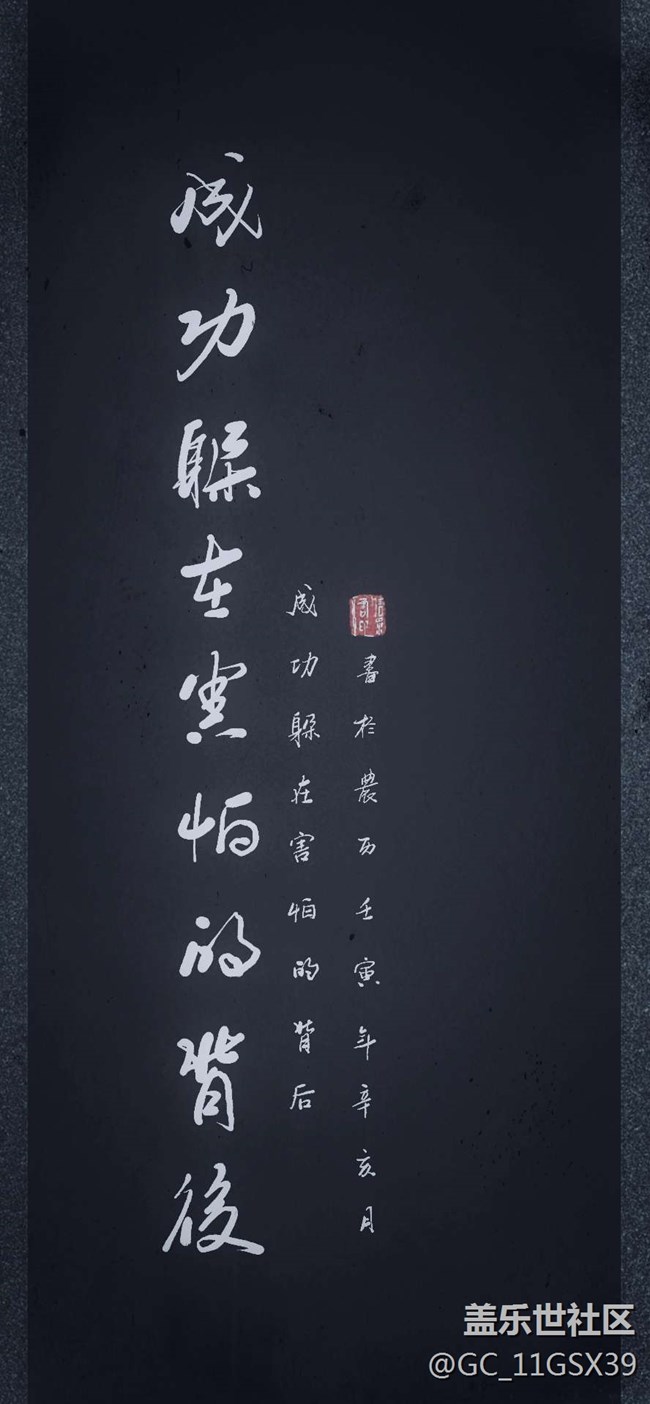 成功躲在害怕的背後
成功躲在害怕的背后
書於農历壬寅年辛亥月
盖乐世社区
@GC_11GSX39